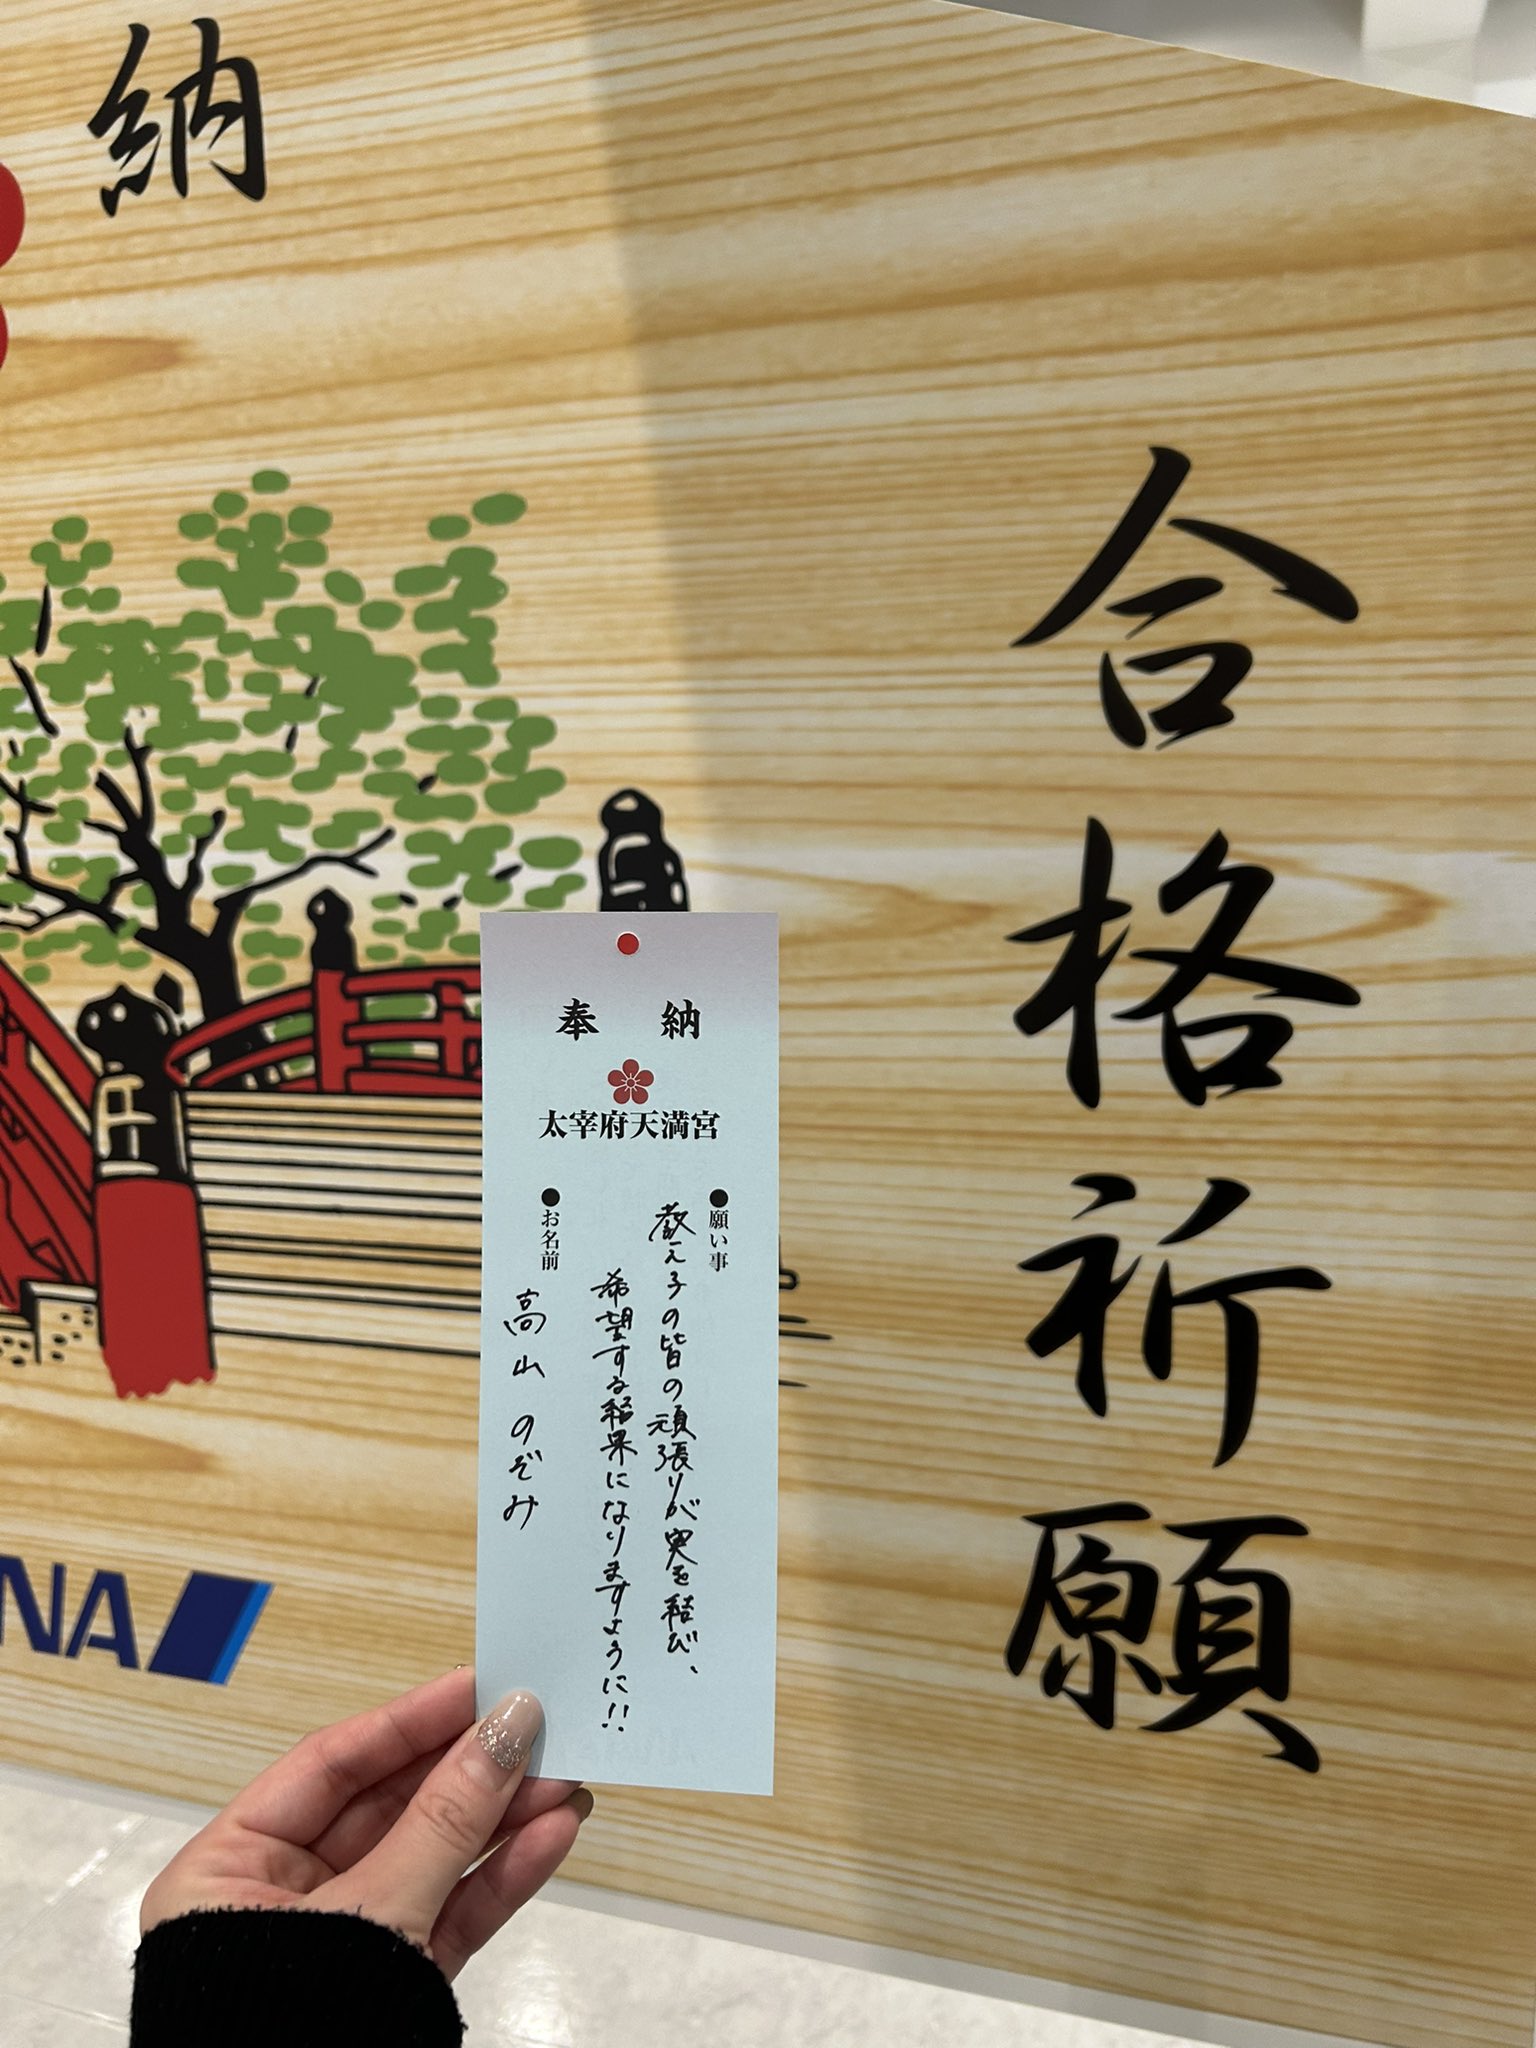 納
合格祈願
奉 納
太宰府天満宮
●願い事
教え子の皆の頑張りが実を結び、
希望する結果になりますように!!
●お名前
高山 のぞみ
NA